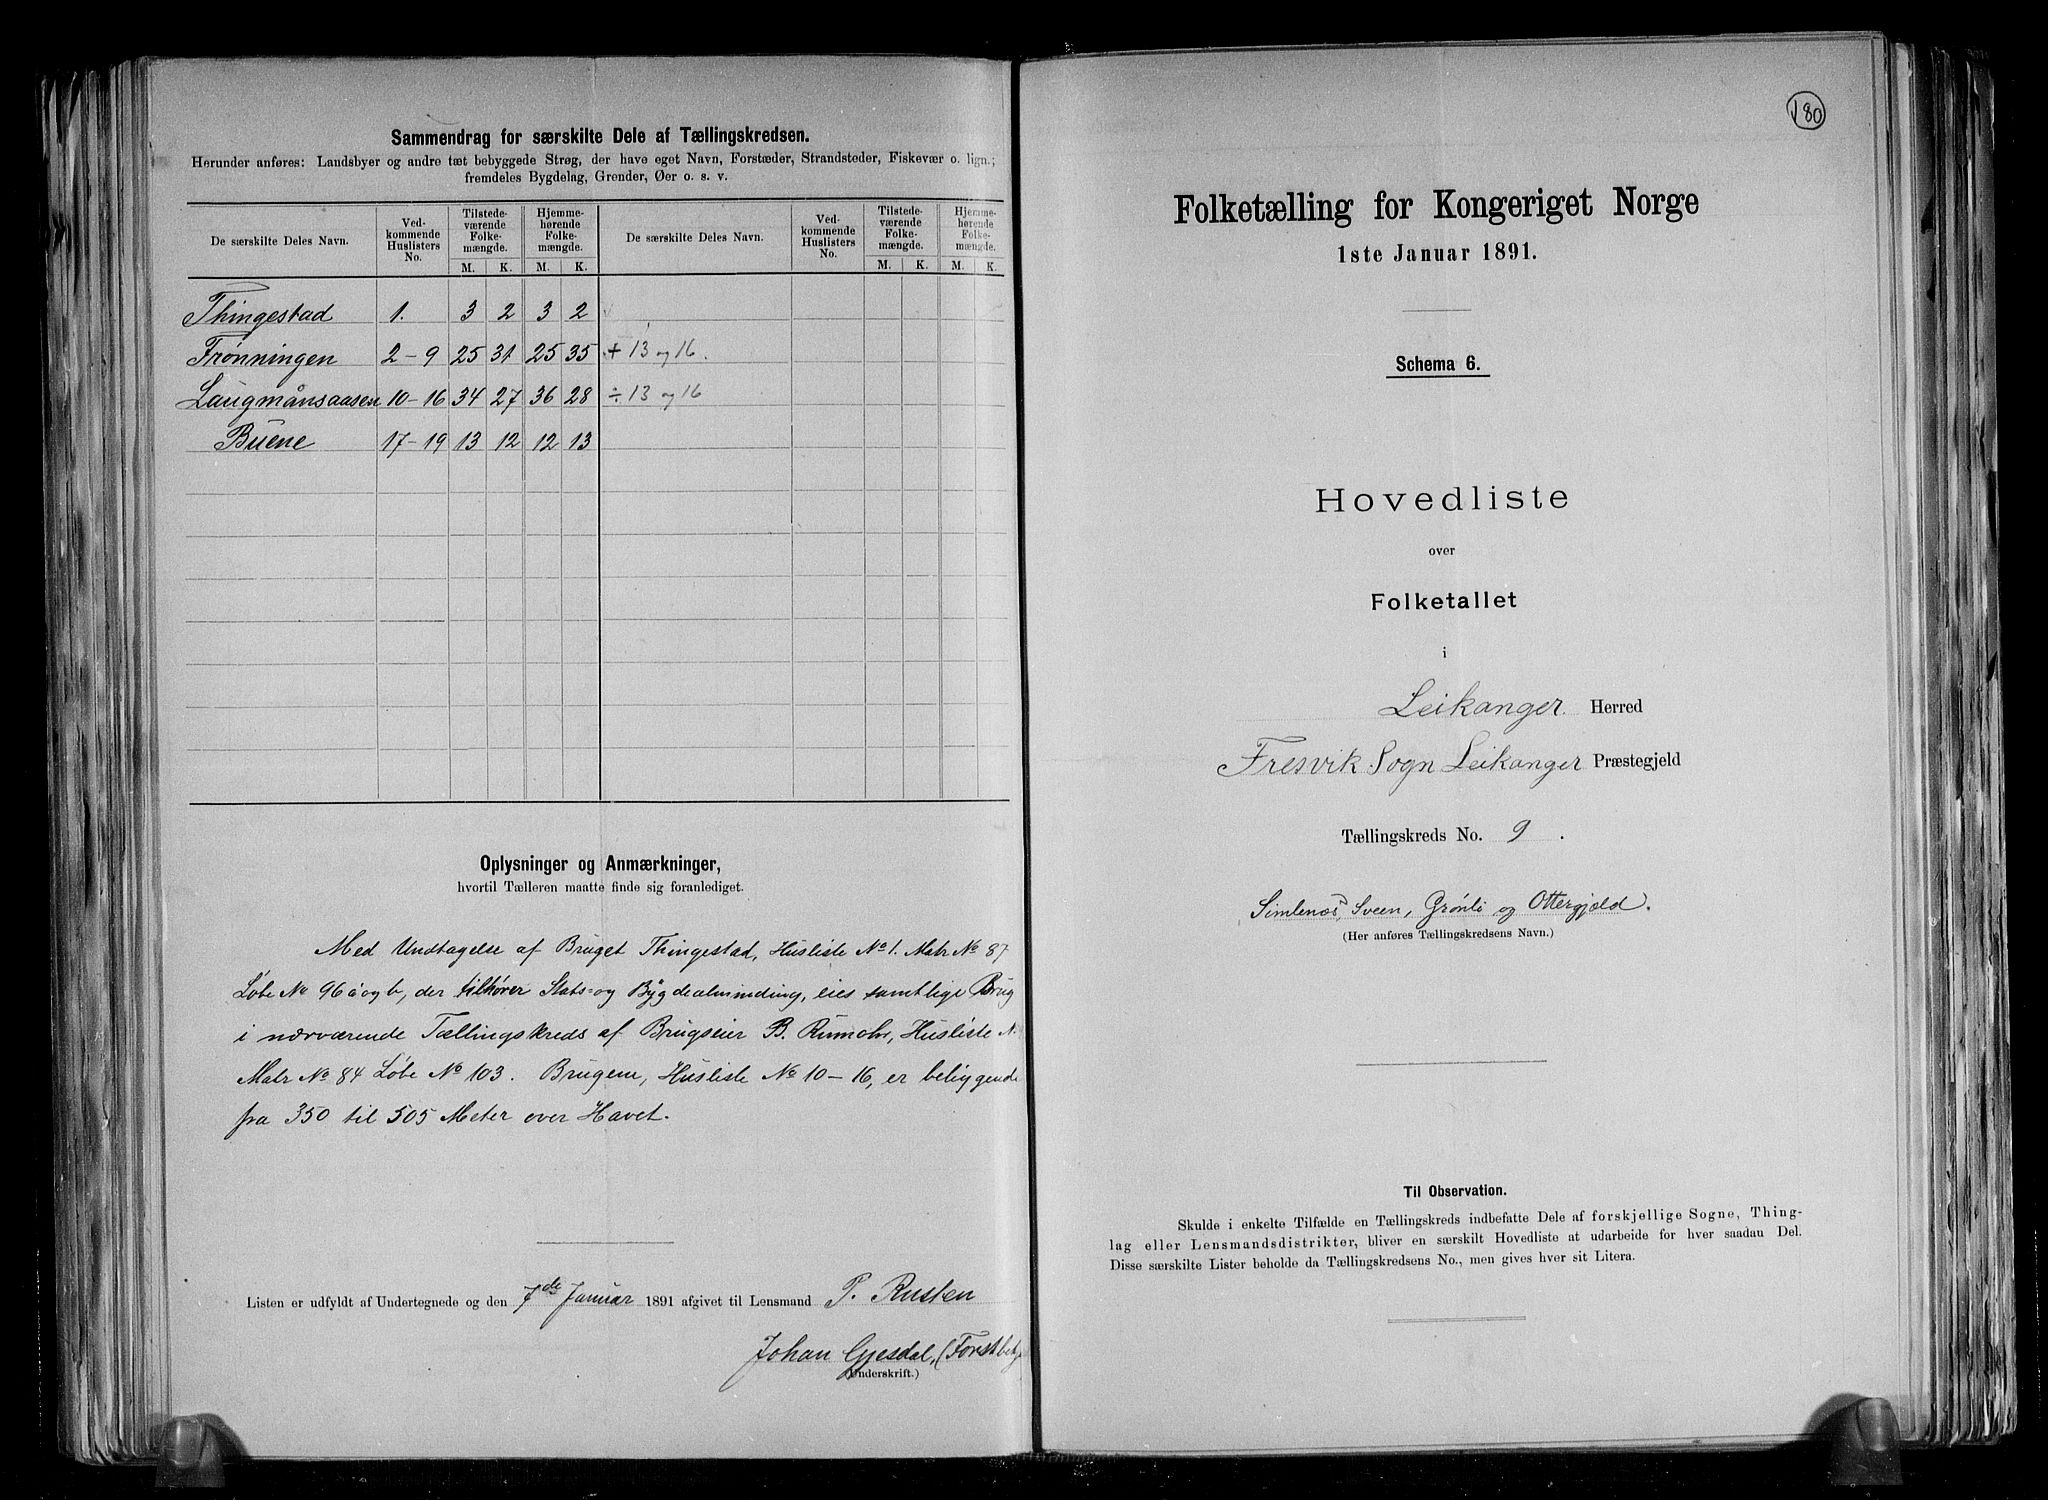 Sammendrag for særskilte Dele af Tællingskredsen.
Herunder anføres: Landsbyer og andre tæt bebyggede Strøg, der have eget Navn, Forstæder, Strandsteder, Fiskevær o. lign.;
fremdeles Bygdelag, Grender, Øer o. s. v.
De særskilte Deles Navn. Vedkommende Huslisters No. Tilstedeværende Folkemængde. Hjemmehørende Folkemængde. De særskilte Deles Navn. Vedkommende Huslisters No. Tilstedeværende Folkemængde. Hjemmehørende Folkemængde.
M. K. M. K. M. K. M. K.
Thingestad 1. 3 2 3 2
Frønningen 2-9 25 31 25 35 + 13 og 16.
Laugmånsaasen 10-16 34 27 36 28 ÷ 13 og 16
Buene 17-19 13 12 12 13
Oplysninger og Anmærkninger,
hvortil Tælleren maatte finde sig foranlediget.
Med Undtagelse af Bruget Thingestad, Husliste No 1. Matr No 87
Løbe No 96 a og b, der tilhører Stats- og Bygdealminding, eies samtlige Brug
i nærværende Tællingskreds af Brugseier B. Rumohr, Husliste N.
Matr No 84 Løbe No 103. Brugene, Husliste No 10-16, er beliggende
fra 350 til 505 Meter over Havet.
Listen er udfyldt af Undertegnede og den 7de Januar 1891 afgivet til Lensmand P. Rusten
Johan Gjesdal, (Forstbetj
(Underskrift.)
180
Folketælling for Kongeriget Norge
1ste Januar 1891.
Schema 6.
Hovedliste
over
Folketallet
i
Leikanger Herred
Fresvik Sogn Leikanger Præstegjeld
Tællingskreds No. 9.
Simlenæs, Sveen, Grønli og Ottergjeld.
(Her anføres Tællingskredsens Navn.)
Til Observation.
Skulde i enkelte Tilfælde en Tællingskreds indbefatte Dele af forskjellige Sogne, Thing-
lag eller Lensmandsdistrikter, bliver en særskilt Hovedliste at udarbeide for hver saadan Del.
Disse særskilte Lister beholde da Tællingskredsens No., men gives hver sit Litera.